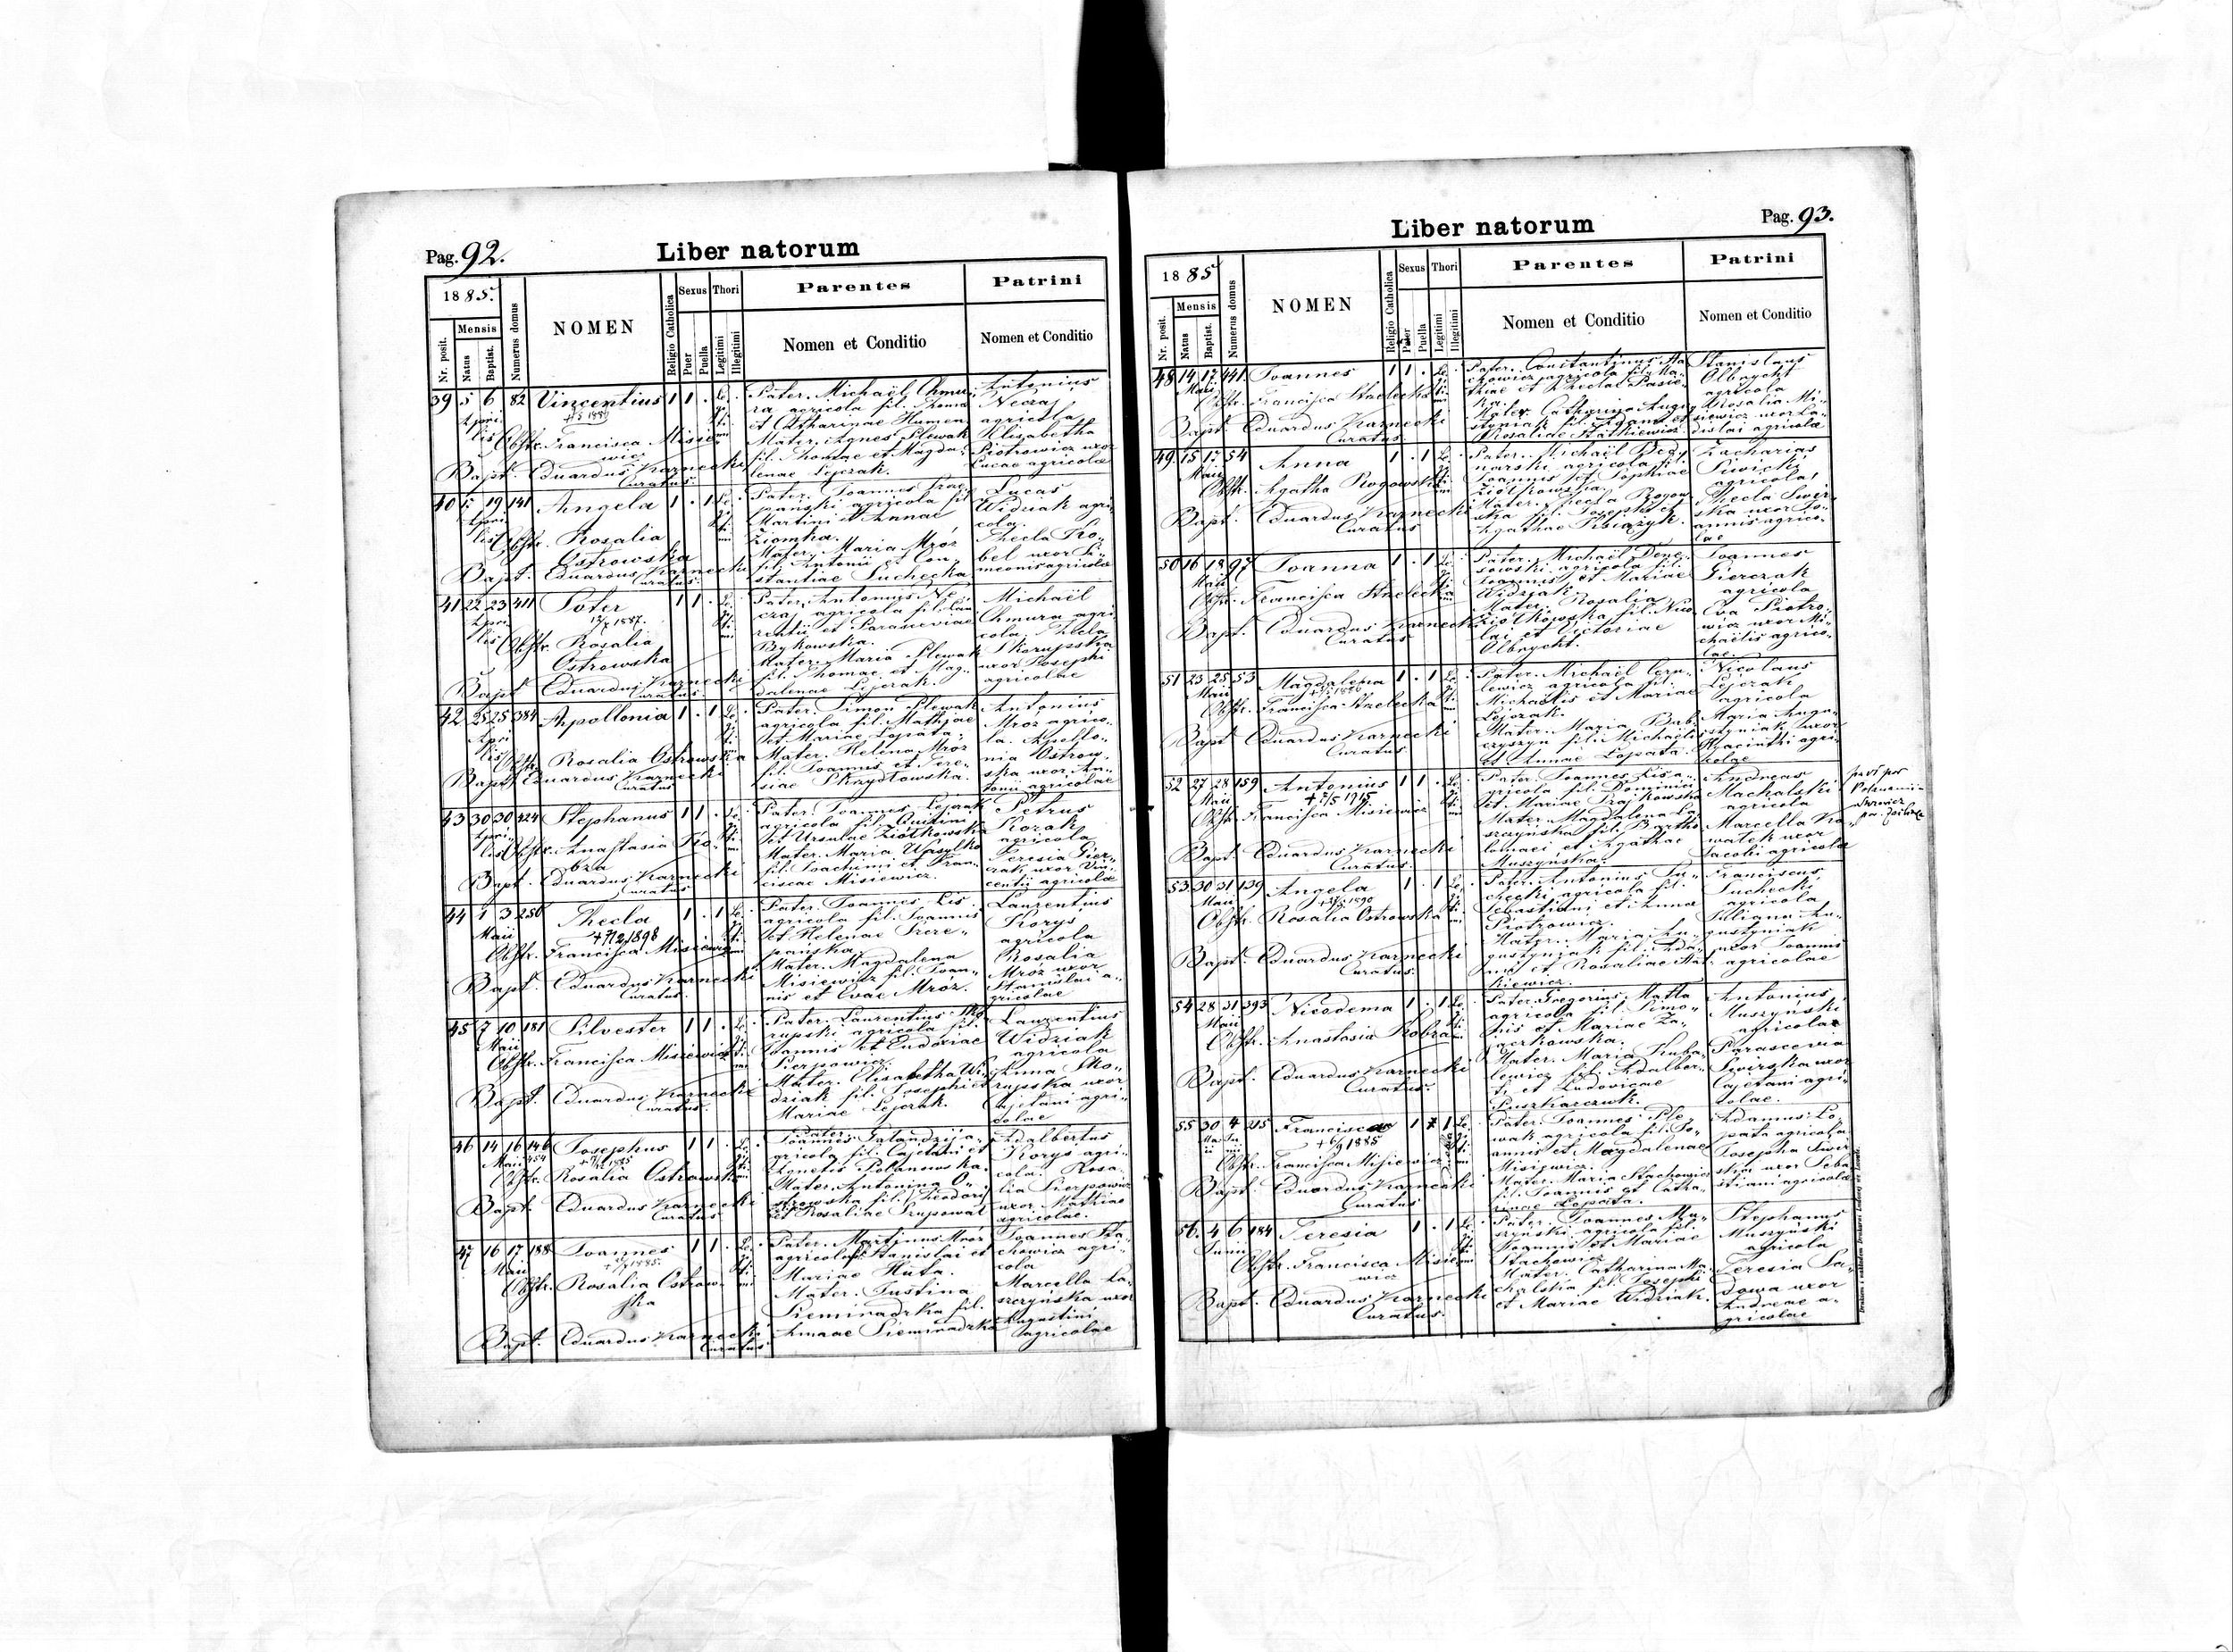 Pag. 92.
Liber natorum
1885.
Nr. posit.
Mensis
Natus
Baptist.
Numerus domus
NOMEN
Religio Catholica
Sexus
Puer
Puella
Thori
Legitimi
Illegitimi
Parentes
Nomen et Conditio
Patrini
Nomen et Conditio
39 5 6 82 Vincentius 1 1 .
Aprilis
Obstr. Francisca Misiewicz
Bapt. Eduardus Karnecki
Curatus
Pater. Michaël Chmu-
ra agricola fil. Thomae
et Catharinae Humen
Mater. Agnes Slewak
fil. Thomae et Magda-
lenae Lejczak.
Antonius
Neczaj
agricola
Elisabetha
Piotrowicz uxor
Lucae agricolae
40 5 19 141 Angela 1 . 1
Obstr. Rosalia
Ostrowska
Bapt. Eduardus Karnecki
Curatus.
Pater. Joannes
agricola fil.
Martini et Annae
Ziomka.
Mater. Maria Mroz
fil. Antonii et Con-
stantiae Suchecka.
Lucas
Widziak agri-
cola.
Thecla Ko-
bel uxor Si-
meonis agricolae
41 22 23 411 Peter 1 1 .
1887.
Obstr. Rosalia
Ostrowska
Bapt. Eduardus Karnecki
Curatus.
Pater. Antonius Ne-
czaj agricola fil. Lau-
rentii et Parasceviae
Bykowska.
Mater. Maria Slewak
fil. Thomae et Mag-
dalenae Lejczak.
Michaël
Chmura agri-
cola. Thecla
Skorupska
uxor Josephi
agricolae
42 25 25 384 Apollonia 1 . 1
Obstr. Rosalia Ostrowska
Bapt. Eduardus Karnecki
Curatus
Pater. Simon Slewak
agricola fil. Mathiae
et Mariae Lopata.
Mater. Helena Mroz
fil. Joannis et There-
siae Skrzydlowska.
Antonius
Mroz agrico-
la. Apollo-
nia Ostrow-
ska uxor An-
tonii agricolae
43 30 30 424 Stephanus 1 1 .
Obstr. Anastasia Ko-
bza
Bapt. Eduardus Karnecki
Curatus
Pater. Joannes Lejczak
agricola fil. Justini
et Ursulae Ziółkowska
Mater. Maria Wasylko
fil. Joachimi et Fran-
ciscae Misiewicz.
Petrus
Kozak
agricola
Teresia Gier-
czak uxor Vin-
centii agricolae
44 1 3 256 Thecla 1 . 1
Maii
Obstr. Francisca Misiewicz
Bapt. Eduardus Karnecki
Curatus.
Pater. Joannes Lis
agricola fil. Joannis
et Helenae
Mater. Magdalena
Misiewicz fil. Joan-
nis et Evae Mroz.
Laurentius
Korys
agricola
Rosalia
Mroz uxor
Stanislai a-
gricolae
45 7 10 181 Silvester 1 1 .
Maii
Obstr. Francisca Misiewicz
Bapt. Eduardus Karnecki
Curatus.
Pater. Laurentius Sko-
rupski agricola fil.
Joannis et Eudoxiae
Sierpowicz.
Mater. Elisabetha Wi-
dziak fil. Josephi et
Mariae Lejczak.
Laurentius
Widziak
agricola
Anna Sko-
rupska uxor
Cajetani agri-
colae
46 14 16 146 Josephus 1 1 .
Maii
Obstr. Rosalia Ostrowska
Bapt. Eduardus Karnecki
Curatus
Pater.
Joannes a-
gricola fil. Cajetani et
Agnetis Polanowska.
Mater. Antonina O-
strowska fil. Theodori
et Rosaliae
Adalbertus
Korys agri-
cola. Rosa-
lia Sierpowicz
uxor Mathiae
agricolae.
47 16 17 188 Joannes 1 1 .
Maii
Obstr. Rosalia Ostrow-
ska
Bapt. Eduardus Karnecki
Curatus
Pater. Martinus Mroz
agricola fil. Stanislai et
Mariae Huta.
Mater. Justina
Sieminadzka fil.
Annae Sieminadzka
Joannes Sta-
chowicz agri-
cola
Marcella La-
szczyńska uxor
Augustini
agricolae
Liber natorum
Pag. 93.
1885
Nr. posit.
Mensis
Natus
Baptist.
Numerus domus
NOMEN
Religio Catholica
Sexus
Puer
Puella
Thori
Legitimi
Illegitimi
Parentes
Nomen et Conditio
Patrini
Nomen et Conditio
48 14 17 441 Joannes 1 1 .
Maii
Obstr. Francisca Strelecka
Bapt. Eduardus Karnecki
Curatus.
Pater. Constantinus Sta-
chowicz agricola fil. Ma-
thiae et Theclae
Mater. Catharina Augu-
styniak fil. Adami et
Rosaliae Statkiewicz.
Stanislaus
Olbrycht
agricola
Rosalia Mi-
siewicz uxor La-
dislai agricolae
49 15 17 54 Anna 1 . 1
Maii
Obstr. Agatha Rogowska
Bapt. Eduardus Karnecki
Curatus
Pater. Michaël Bed-
narski agricola fil.
Joannis et Sophiae
Ziółkowska.
Mater. Thecla Rogow-
ska fil. Josephi et
Agathae
Zacharias
Siwicki
agricola,
Thecla Swir-
ska uxor Jo-
annis agrico-
lae
50 16 18 97 Joanna 1 . 1
Maii
Obstr. Francisca Strelecka
Bapt. Eduardus Karnecki
Curatus
Pater. Michaël
agricola fil.
Joannis et Mariae
Widziak.
Mater. Rosalia
Ziółkowska fil. Nico-
lai et Victoriae
Olbrycht.
Joannes
Gierczak
agricola
Eva Piotro-
wicz uxor Mi-
chaëlis agrico-
lae.
51 23 25 53 Magdalena 1 . 1
Maii
Obstr. Francisca Strelecka
Bapt. Eduardus Karnecki
Curatus
Pater. Michaël
agricola fil.
Michaëlis et Mariae
Lejczak.
Mater. Maria Bab-
czyszyn fil. Michaëlis
et Annae Lopata.
Nicolaus
Lejczak
agricola
Maria Augu-
styniak uxor
Hyacinthi agri-
colae
52 27 28 159 Antonius 1 1 .
Maii
Obstr. Francisca Misiewicz
Bapt. Eduardus Karnecki
Curatus.
Pater. Joannes Lis a-
gricola fil. Dominici
et Mariae
Mater. Magdalena La-
szczyńska fil. Bartho-
lomaei et Agathae
Muszyńska.
Andreas
Machalski
agricola
Marcella Ko-
watek uxor
Jacobi agricolae
53 30 31 139 Angela 1 . 1
Maii
Obstr. Rosalia Ostrowska
Bapt. Eduardus Karnecki
Curatus.
Pater. Antonius Su-
checki agricola fil.
Sebastiani et Annae
Piotrowicz.
Mater. Maria Au-
gustyniak fil. Ada-
mi et Rosaliae Stat-
kiewicz.
Franciscus
Suchecki
agricola
Juliana Au-
gustyniak
uxor Joannis
agricolae
54 28 31 393 Nicodema 1 . 1
Maii
Obstr. Anastasia Kobza
Bapt. Eduardus Karnecki
Curatus.
Pater. Gregorius Matla
agricola fil. Simo-
nis et Mariae
Mater. Maria Kuba-
lewicz fil. Adalber-
ti et Ludovicae
Puszkarczuk.
Antonius
Muszyński
agricola
Parascevia
Swirska uxor
Cajetani agri-
colae.
55 30 4 215 Francisca 1
Obstr. Francisca Misiewicz
Bapt. Eduardus Karnecki
Curatus
Pater. Joannes Sle-
wak agricola fil. Jo-
annis et Magdalenae
Misiewicz.
Mater. Maria Stachowicz
fil. Joannis et Catha-
rinae Lopata.
Adamus Lo-
pata agricola
Josepha Swir-
ska uxor Seba-
stiani agricolae
56. 4 6 184 Teresia 1 . 1
Junii
Obstr. Francisca Misie-
wicz
Bapt. Eduardus Karnecki
Curatus.
Pater. Joannes Mu-
szyński agricola fil.
Joannis et Mariae
Stachowicz.
Mater. Catharina Ma-
chalska fil. Josephi
et Mariae Widziak.
Stephanus
Muszyński
agricola
Teresia Sa-
dowa uxor
Andreae a-
gricolae